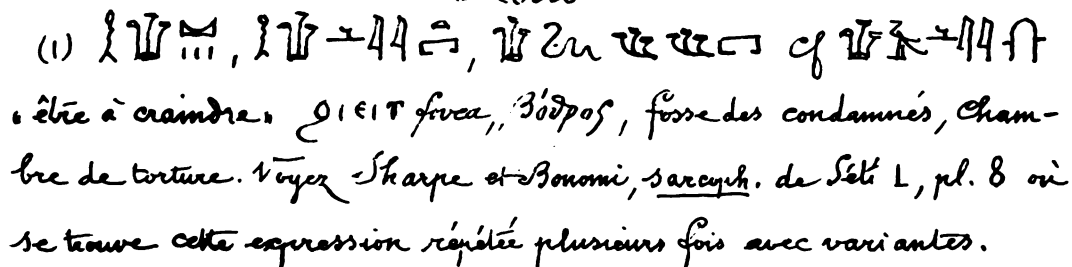 (1) , , cf
« être à craindre » ϩⲓⲉⲓⲧ fovea, βόθρος, fosse des condamnés, cham-
bre de torture. Voyez Sharpe et Bonomi, sarcoph. de Séti I, pl. 8 où
se trouve cette expression répétée plusieurs fois avec variantes.